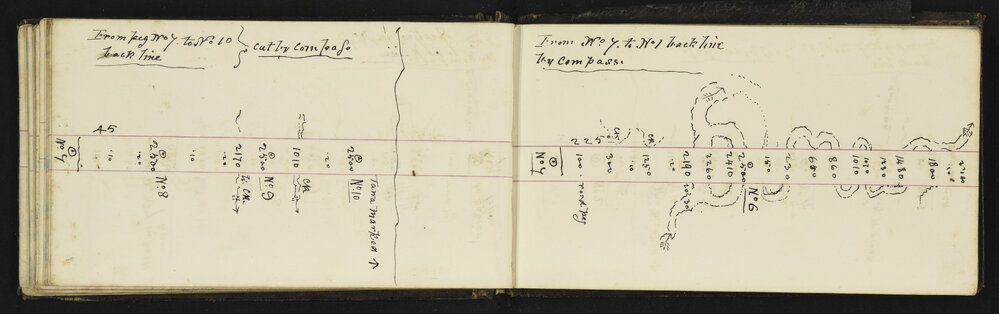 From peg No 7. to No 10
back line
cut by compass
45
⊙
No 7
.10
.20
⊙
2500 No 8
.10
.20
2170 to CK
⊙
2500 No 9
1010 CK
.20
⊙
2500 No 10
Tawa marked
From No 7. to No 1 back line
by Compass.
225
⊙
No 7
100 road peg
300 CK
.10
1250 CK
.20
2190
2260
2410
⊙
2500 No 6
150
250
650
860
1010
1250
1480
1800